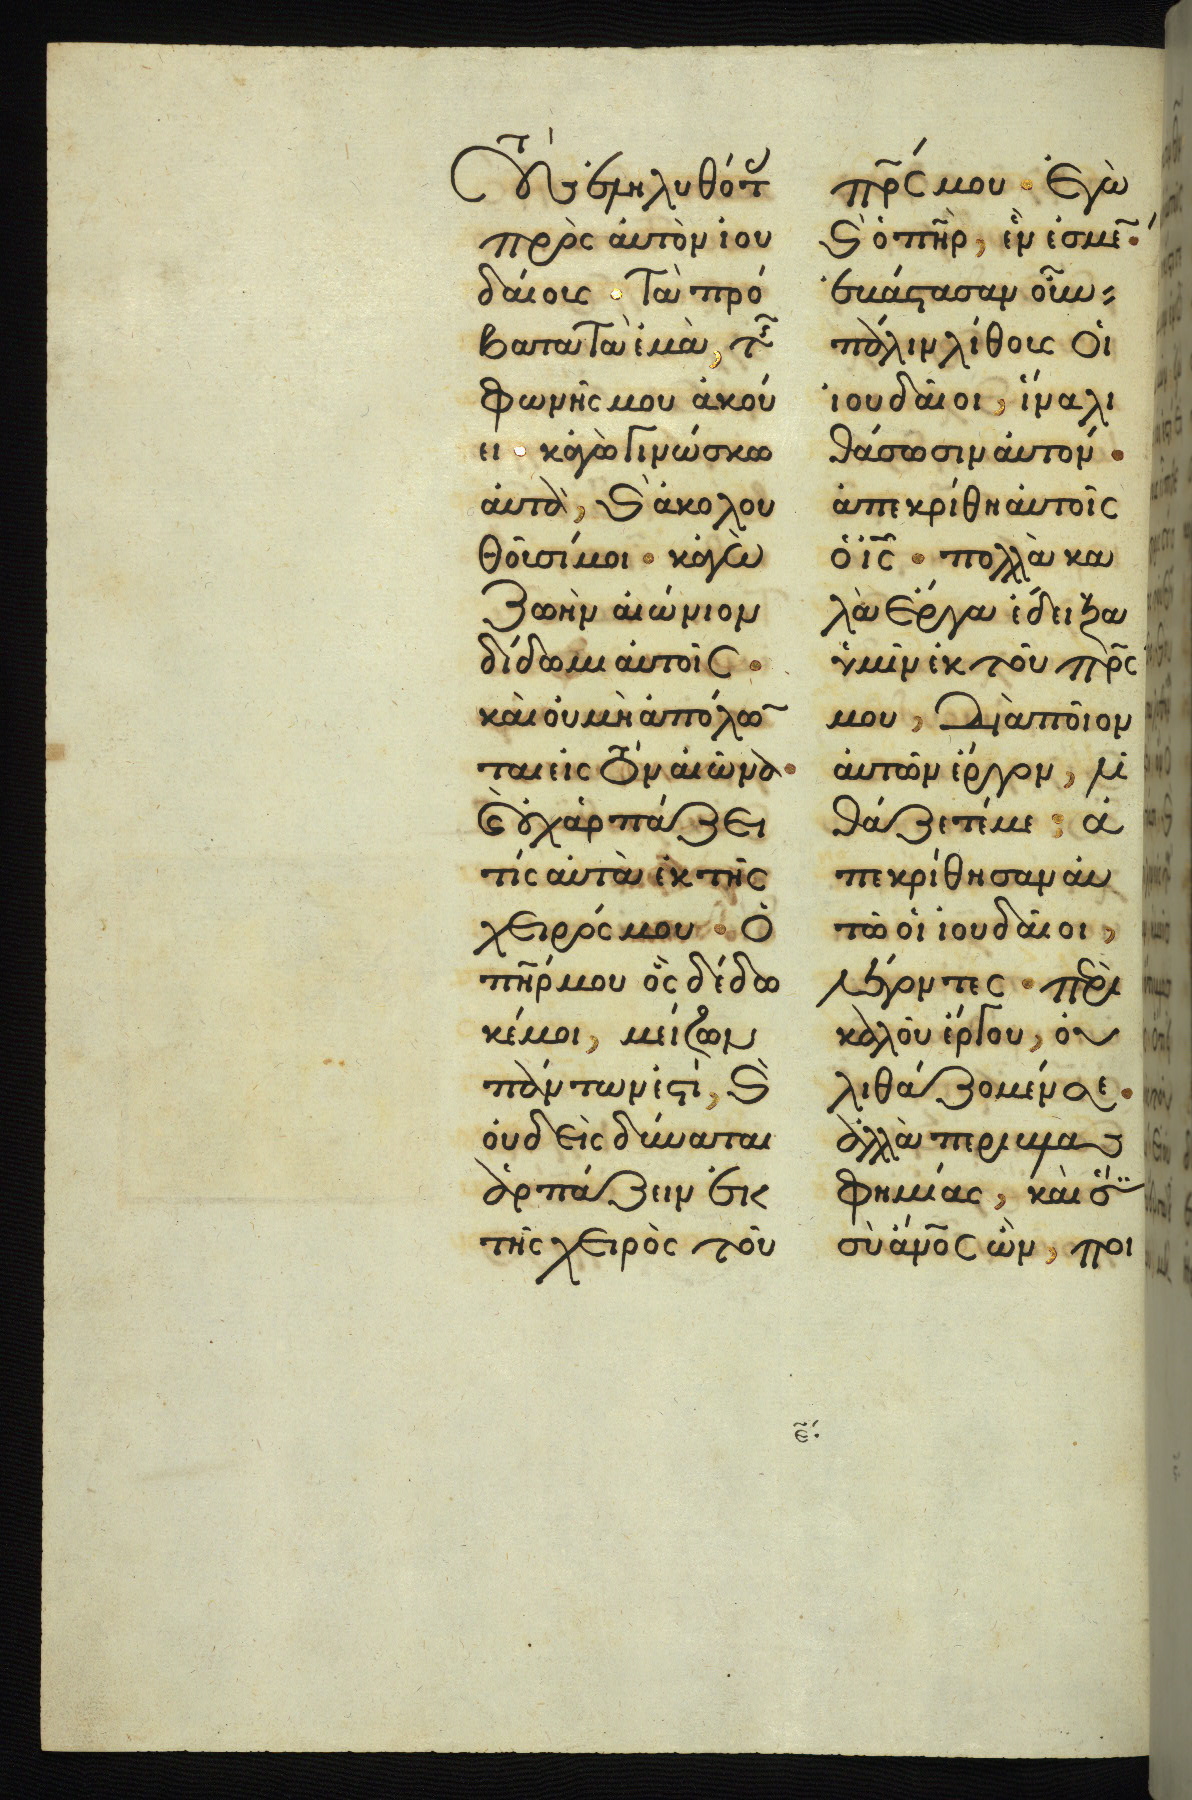 τοὺς ἐληλυθότ
πρὸς ἀυτὸν ἰου
δάιους · Τὰ πρό
βατα τὰ ἐμὰ, τῆ
φωνῆς μου ἀκού
ει · κἀγὼ γινώσκω
ἀυτὰ, ϗ̀ ἀκολου
θοῦσί μοι · κἀγὼ
ζωὴν αἰώνιον
δίδωμι ἀυτοῖς ·
κὰι ὀυ μὴ ἀπόλω̃
ται εἰς τὸν αἰῶνα ·
ϗ̀ ὀυχ ἁρπάζει
τίς ἀυτὰ ἐκ τῆς
χειρός μου · Ὁ
πη̃ρ μου ὃς δέδω
κέ μοι, μείζων
πάντων ἐστὶ, ϗ̀
ὀυδεὶς δύναται
ἁρπάζειν ἐκ
τῆς χειρὸς τοῦ
πρ̃ς μου · Ἐγὼ
ϗ̀ ὁ πη̃ρ, ἕν ἐσμε̃ ·
ἐβάστασαν οὖν
πάλιν λίθους Οἱ
ἰουδαῖοι, ἵνα λι
θάσωσιν ἀυτόν ·
ἀπεκρίθη ἀυτοῖς
ὁ ἰς̃ · πολλὰ κα
λὰ ἔργα ἔδειξα
ὑμῖν ἐκ τοῦ πρ̃ς
μου, Διὰ ποῖον
ἀυτῶν ἔργον, λι
θάζετέ με ; ἀ
πεκρίθησαν ἀυ
τῶ οἱ ἰουδαῖοι,
λέγοντες · περὶ
καλοῦ ἔργου, ὀυ
λιθάζομέν σε ·
ἀλλὰ περὶ βλασ
φημίας, κὰι ὅτι
σὺ ἄν̃ος ὢν, ποι
ε̃ ·